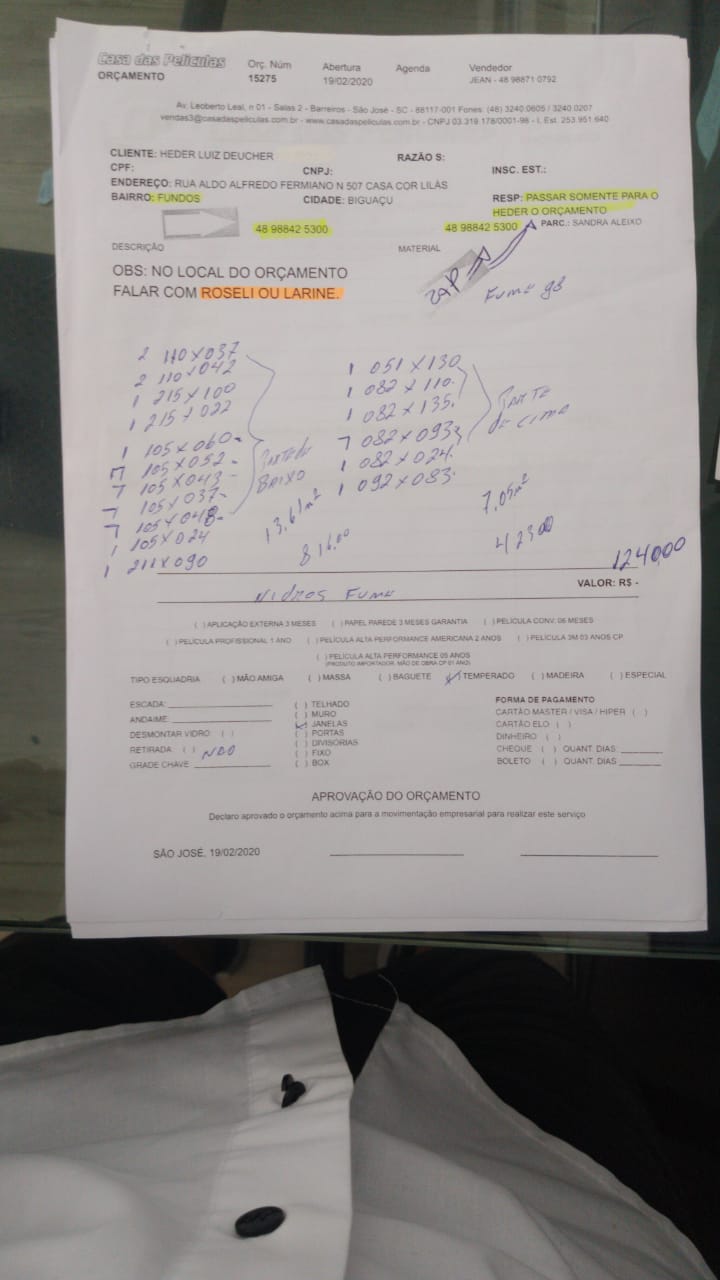 Casa das Películas
ORÇAMENTO
Orç. Núm
15275
Abertura
19/02/2020
Agenda
Vendedor
JEAN - 48 98871 0792
Av. Leoberto Leal, n 01 - Salas 2 - Barreiros - São José - SC - 88117-001 Fones: (48) 3240.0605 / 3240.0207
vendas3@casadaspeliculas.com.br - www.casadaspeliculas.com.br - CNPJ 03.319.178/0001-98 - I. Est. 253.951.640
CLIENTE: HEDER LUIZ DEUCHER
RAZÃO S:
CPF:
CNPJ:
INSC. EST.:
ENDEREÇO: RUA ALDO ALFREDO FERMIANO N 507 CASA COR LILÁS
BAIRRO: FUNDOS
CIDADE: BIGUAÇU
RESP: PASSAR SOMENTE PARA O
HEDER O ORÇAMENTO
48 98842 5300
48 98842 5300
PARC.: SANDRA ALEIXO
DESCRIÇÃO
MATERIAL
ZAP
OBS: NO LOCAL DO ORÇAMENTO
FALAR COM ROSELI OU LARINE.
FUME g3
2 110 X 037
2 110 X 042
1 215 X 100
1 215 X 022
1 105 X 060
105 X 052
105 X 043
105 X 037
105 X 048
1 105 X 024
1 211 X 090
PARTE DE
BAIXO
13,61 m²
816,00
1 051 X 130
1 082 X 110
1 082 X 135
082 X 093
1 082 X 024
1 092 X 083
PARTE
DE CIMA
7,05 m²
423,00
1240,00
VALOR: R$ -
VIDROS FUME
( ) APLICAÇÃO EXTERNA 3 MESES ( ) PAPEL PAREDE 3 MESES GARANTIA ( ) PELÍCULA CONV. 06 MESES
( ) PELÍCULA PROFISSIONAL 1 ANO ( ) PELÍCULA ALTA PERFORMANCE AMERICANA 2 ANOS ( ) PELÍCULA 3M 03 ANOS CP
( ) PELÍCULA ALTA PERFORMANCE 05 ANOS
(PRODUTO IMPORTADOR. MÃO DE OBRA CP 01 ANO)
TIPO ESQUADRIA ( ) MÃO AMIGA ( ) MASSA ( ) BAGUETE ( ) TEMPERADO ( ) MADEIRA ( ) ESPECIAL
ESCADA:
ANDAIME:
DESMONTAR VIDRO: ( )
RETIRADA: ( ) NÃO
GRADE CHAVE:
( ) TELHADO
( ) MURO
( ) JANELAS
( ) PORTAS
( ) DIVISORIAS
( ) FIXO
( ) BOX
FORMA DE PAGAMENTO
CARTÃO MASTER / VISA / HIPER ( )
CARTÃO ELO ( )
DINHEIRO ( )
CHEQUE ( ) QUANT. DIAS
BOLETO ( ) QUANT. DIAS
APROVAÇÃO DO ORÇAMENTO
Declaro aprovado o orçamento acima para a movimentação empresarial para realizar este serviço
SÃO JOSÉ, 19/02/2020